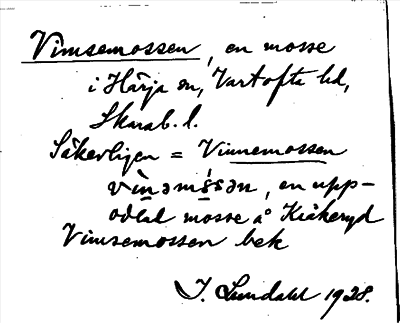 Vimsemossen, en mosse
i Härja sn, Vartofta hd,
Skarab. l.
Säkerligen = Vinnemossen
vìnəmɵ́sən, en upp-
odlad mosse å Kråkeryd
Vimsemossen bek
J. Sundahl 1928.